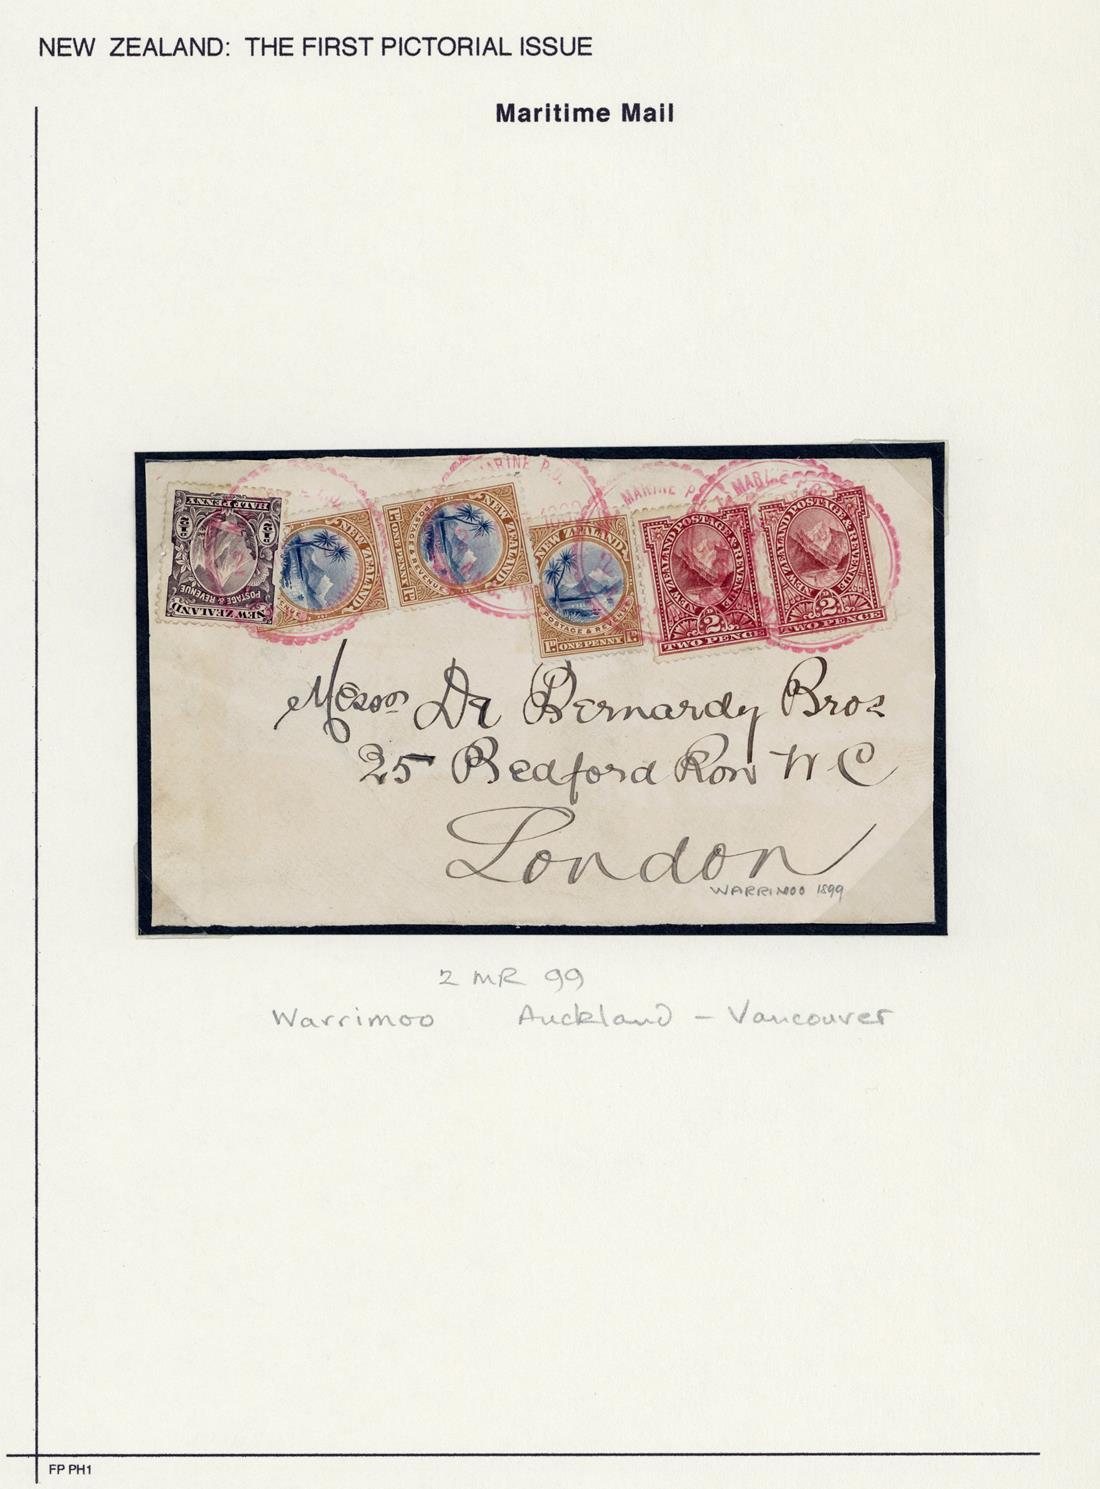 NEW ZEALAND: THE FIRST PICTORIAL ISSUE
Maritime Mail
MARINE P.O.
MARINE P
MARINE
HALFPENNY
POSTAGE & REVENUE
NEW ZEALAND
NEW ZEALAND
NEW ZEALAND
POSTAGE & REVENUE
1D ONE PENNY 1D
NEW ZEALAND
POSTAGE & REVENUE
1D ONE PENNY 1D
NEW ZEALAND POSTAGE & REVENUE
2D
TWO PENCE
NEW ZEALAND POSTAGE & REVENUE
2D
TWO PENCE
Messrs De Bernardy Bros
25 Bedford Row W C
London
WARRIMOO 1899
2 MR 99
Warrimoo Auckland - Vancouver
FP PH1